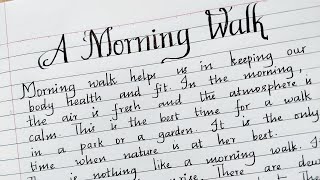 A Morning Walk
Morning walk helps us in keeping our
body health and fit. In the morning,
the air is fresh and the atmosphere is
calm. This is the best time for a walk
in a park or a garden. It is the only
time when nature is at her best.
is nothing like a morning walk. I
rise. There are dew